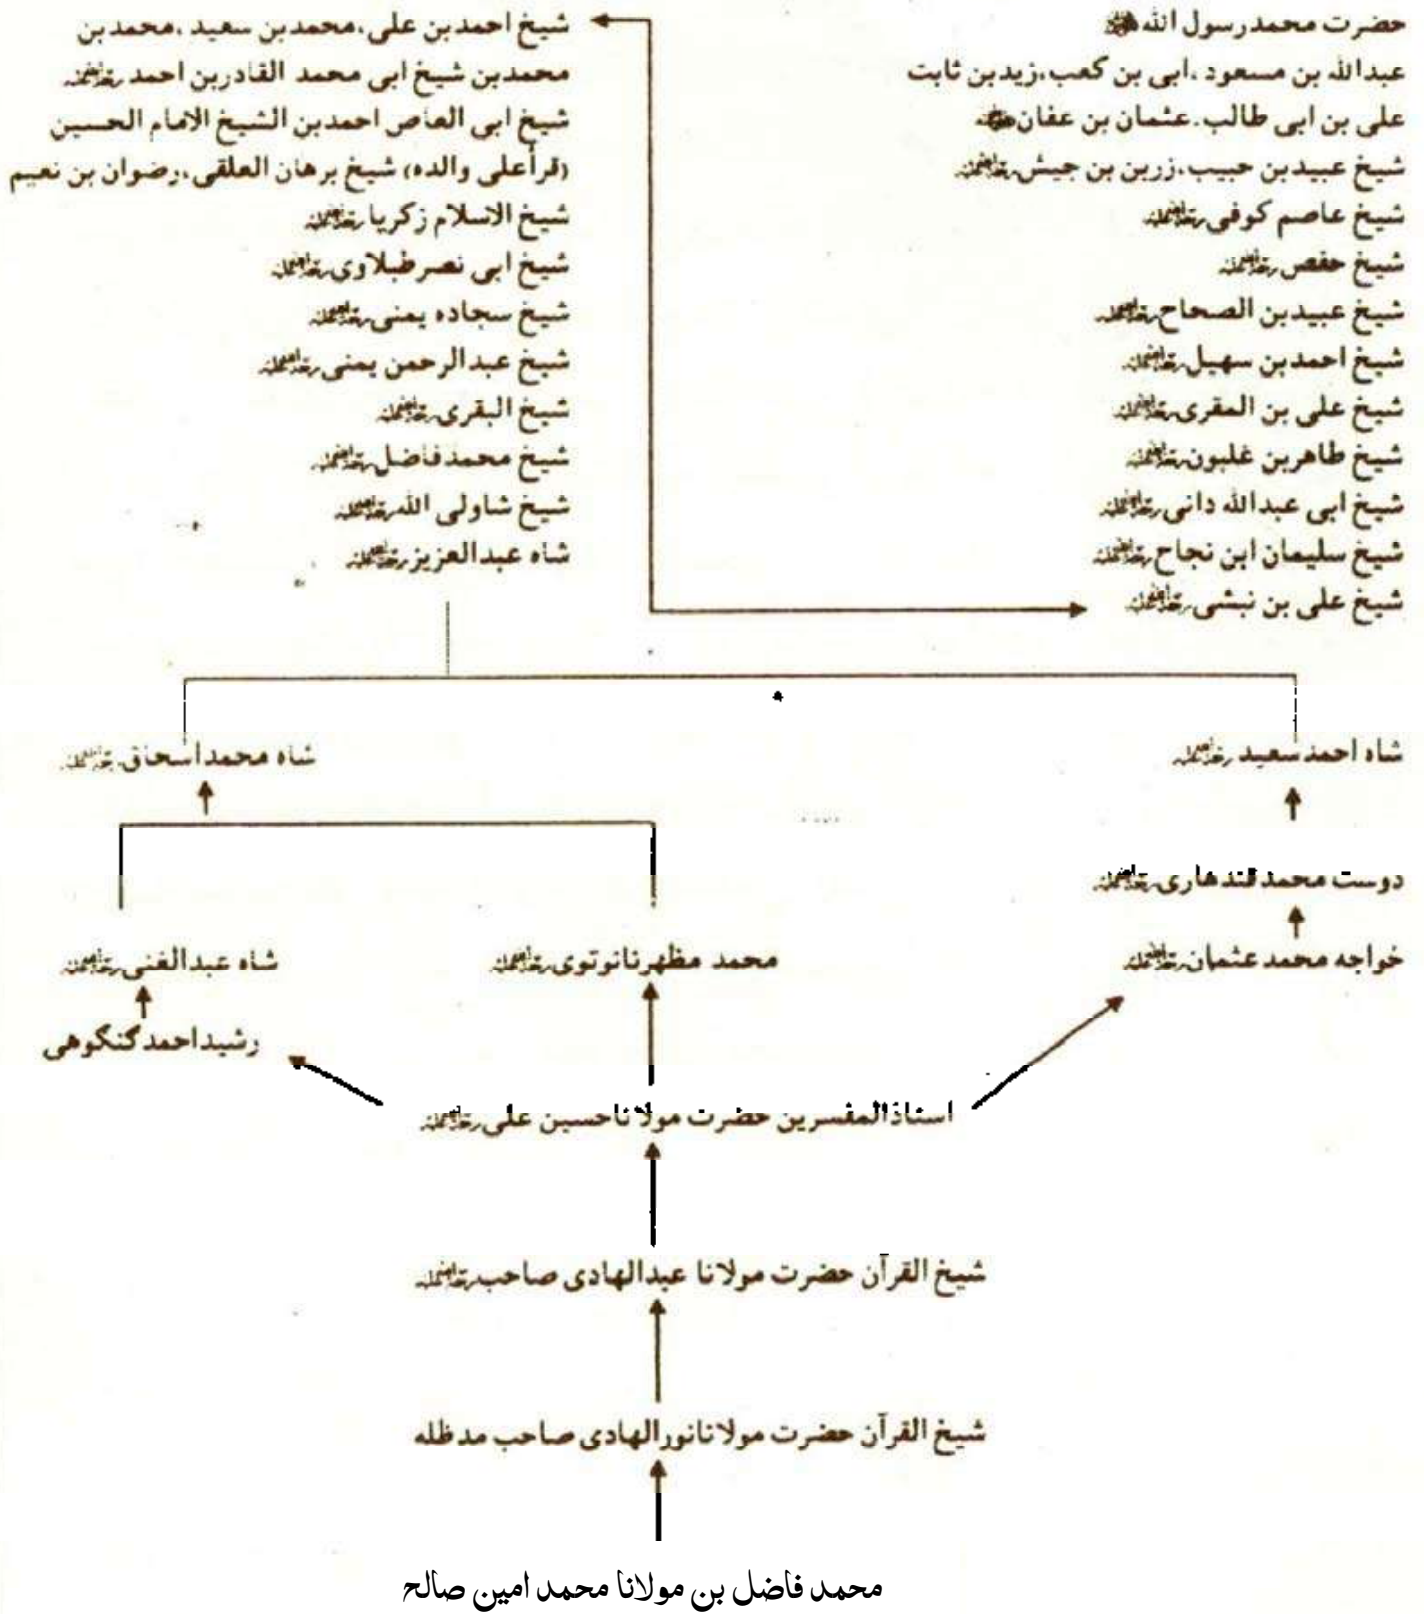 حضرت محمد رسول الله ﷺ
عبدالله بن مسعود، ابی بن کعب، زید بن ثابت
علی بن ابی طالب، عثمان بن عفان
شیخ عبید بن حبیب، زر بن بن جیش رحمۃ اللہ علیہ
شیخ عاصم کوفی رحمۃ اللہ علیہ
شیخ حفص رحمۃ اللہ علیہ
شیخ عبید بن الصحاح رحمۃ اللہ علیہ
شیخ احمد بن سهیل رحمۃ اللہ علیہ
شیخ علی بن المقری رحمۃ اللہ علیہ
شیخ طاهر بن غلبون رحمۃ اللہ علیہ
شیخ ابی عبدالله دانی رحمۃ اللہ علیہ
شیخ سلیمان ابن نجاح رحمۃ اللہ علیہ
شیخ علی بن نبشی رحمۃ اللہ علیہ
شیخ احمد بن علی، محمد بن سعید، محمد بن
محمد بن شیخ ابی محمد القادر بن احمد رحمۃ اللہ علیہ
شیخ ابی العاص احمد بن الشیخ الامام الحسین
(قرأ علی والده) شیخ برهان العلقی، رضوان بن نعیم
شیخ الاسلام زکریا رحمۃ اللہ علیہ
شیخ ابی نصر طبلاوی رحمۃ اللہ علیہ
شیخ سجاده یمنی رحمۃ اللہ علیہ
شیخ عبدالرحمن یمنی رحمۃ اللہ علیہ
شیخ البقری رحمۃ اللہ علیہ
شیخ محمد فاضل رحمۃ اللہ علیہ
شیخ شاولی الله رحمۃ اللہ علیہ
شاه عبدالعزیز رحمۃ اللہ علیہ
شاه احمد سعید رحمۃ اللہ علیہ
شاه محمد اسحاق رحمۃ اللہ علیہ
دوست محمد قندهاری رحمۃ اللہ علیہ
خواجه محمد عثمان رحمۃ اللہ علیہ
محمد مظهر نانوتوی رحمۃ اللہ علیہ
شاه عبدالغنی رحمۃ اللہ علیہ
رشید احمد گنگوهی
استاذ المفسرین حضرت مولانا حسین علی رحمۃ اللہ علیہ
شیخ القرآن حضرت مولانا عبدالهادی صاحب رحمۃ اللہ علیہ
شیخ القرآن حضرت مولانا نورالهادی صاحب مدظله
محمد فاضل بن مولانا محمد امین صالح